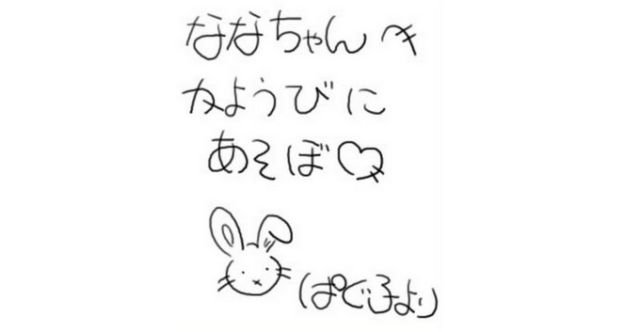 ななちゃんへ
かようびに
あそぼ♡
ぱぐ子より